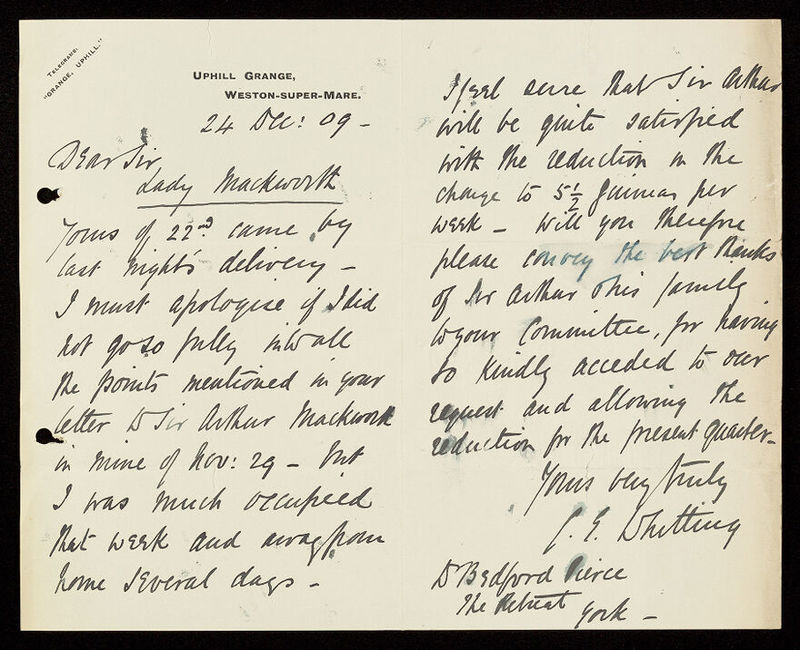 TELEGRAMS:
"GRANGE, UPHILL."
UPHILL GRANGE,
WESTON-SUPER-MARE.
24 Dec: 09 -
Dear Sir,
Lady Mackworth
Yours of 22nd came by
last night's delivery -
I must apologise if I did
not go so fully into all
the points mentioned in your
letter to Sir Arthur Mackworth
in mine of Nov: 29 - but
I was much occupied
that week and away from
home several days -
I feel sure that Sir Arthur
will be quite satisfied
with the reduction in the
charge to 5½ guineas per
week - Will you therefore
please convey the best thanks
of Sir Arthur & his family
to your Committee, for having
so kindly acceded to our
request and allowing the
reduction for the present quarter -
Yours very truly
C. E. Whitting
Dr Bedford Pierce
The Retreat
York -